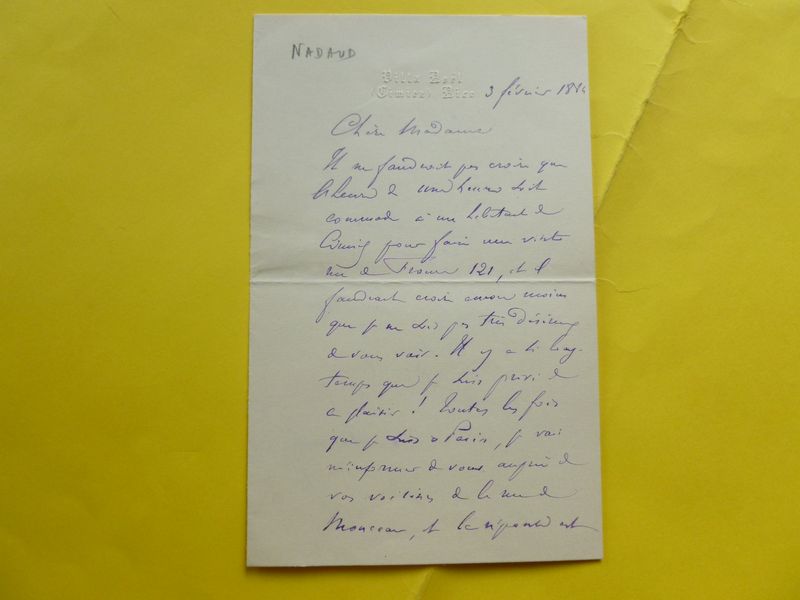 NADAUD
Villa
(Cimiez) Nice 3 février
Chère Madame
Il ne faudrait pas croire que
l'heure de une heure soit
commode à un habitant de
Cimiez pour faire une visite
rue de France 121, et il
faudrait croire encore moins
que je ne sois pas très désireux
de vous voir. Il y a si long-
temps que je suis privé de
ce plaisir! Toutes les fois
que je suis à Paris, je vais
m'informer de vous auprès de
vos voisines de la rue de
Monceau, et la réponse est